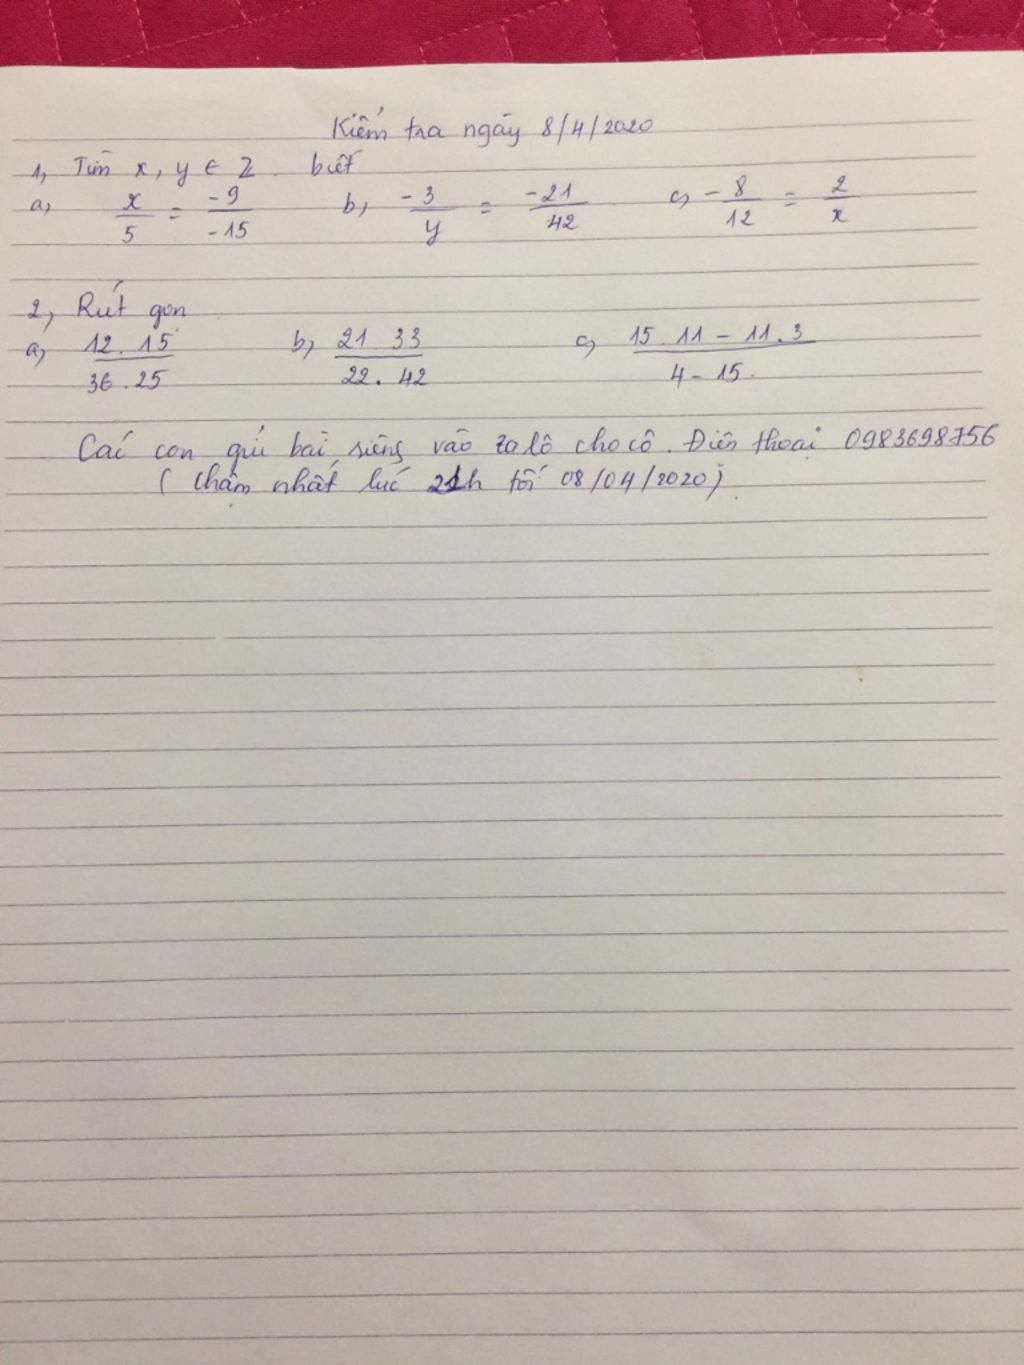 Kiểm tra ngày 8/4/2020
1, Tìm x, y ∈ Z biết
a, x/5 = -9/-15 b, -3/y = -21/42 c, -8/12 = 2/x
2, Rút gọn
a, 12.15/36.25 b, 21.33/22.42 c, 15.11-11.3/4-15
Các con gửi bài riêng vào za lô cho cô. Điện thoại 0983698756
(Chậm nhất lúc 21h tối 08/04/2020)